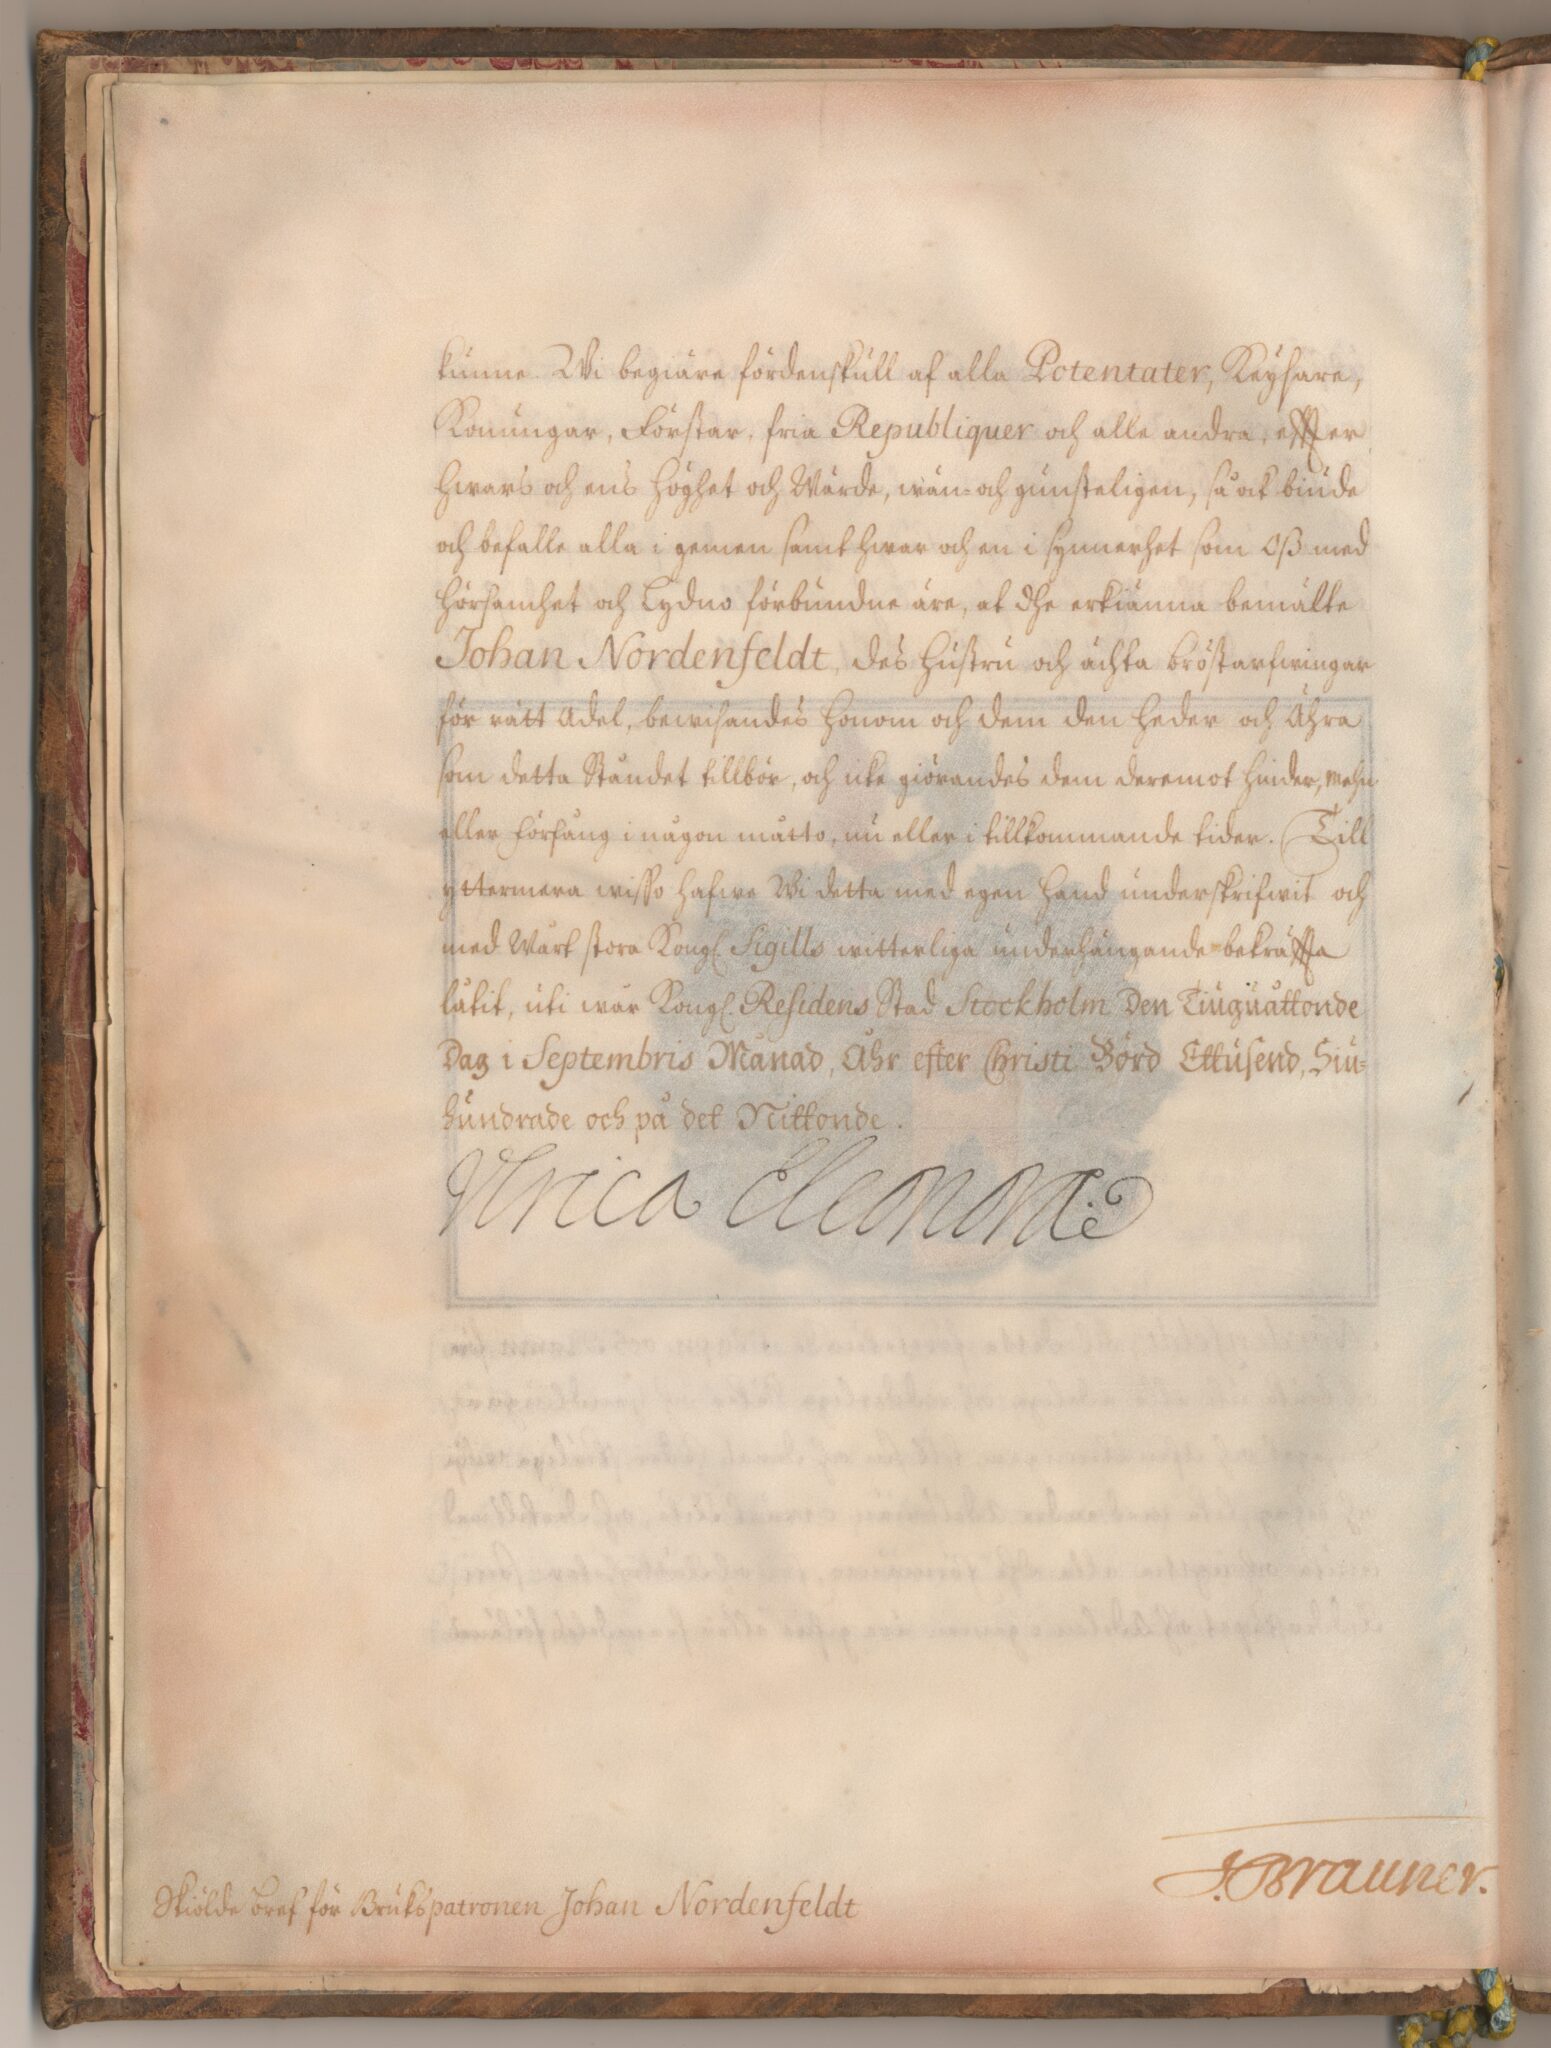 kunne. Wi begiäre fördenskull af alla Potentater, Keÿsare,
Konungar, Förstar, fria Republiquer och alle andra, effter
hwars och ens Höghet och Wärde, wän- och gunsteligen, så ock biude
och befalle alla i gemen samt hwar och en i synnerhet som Oß med
Hörsamhet och Lydno förbundne äre, at dhe erkiänna bemälte
Johan Nordenfeldt, des Hustru och ächta Bröstarfwingar
för rätt Adel, bewisandes honom och dem den Heder och Ähra
som detta Ståndet tillbör, och icke giörandes dem deremot hinder, mehn
eller förfång i någon måtto, nu eller i tillkommande tider. Till
yttermera wisso hafwe Wi detta med egen Hand underskrifwit och
med Wårt stora Kongl. Sigills witterliga underhängande bekräffta
låtit, uti wår Kongl. Residens Stad Stockholm Den Tiuguåttonde
Dag i Septembris Månad, Åhr efter Christi Börd Ettusend, Siu-
hundrade och på det Nittonde.
Vlrica Eleonora
J. Brauner.
Skiölde Bref för Brukspatronen Johan Nordenfeldt